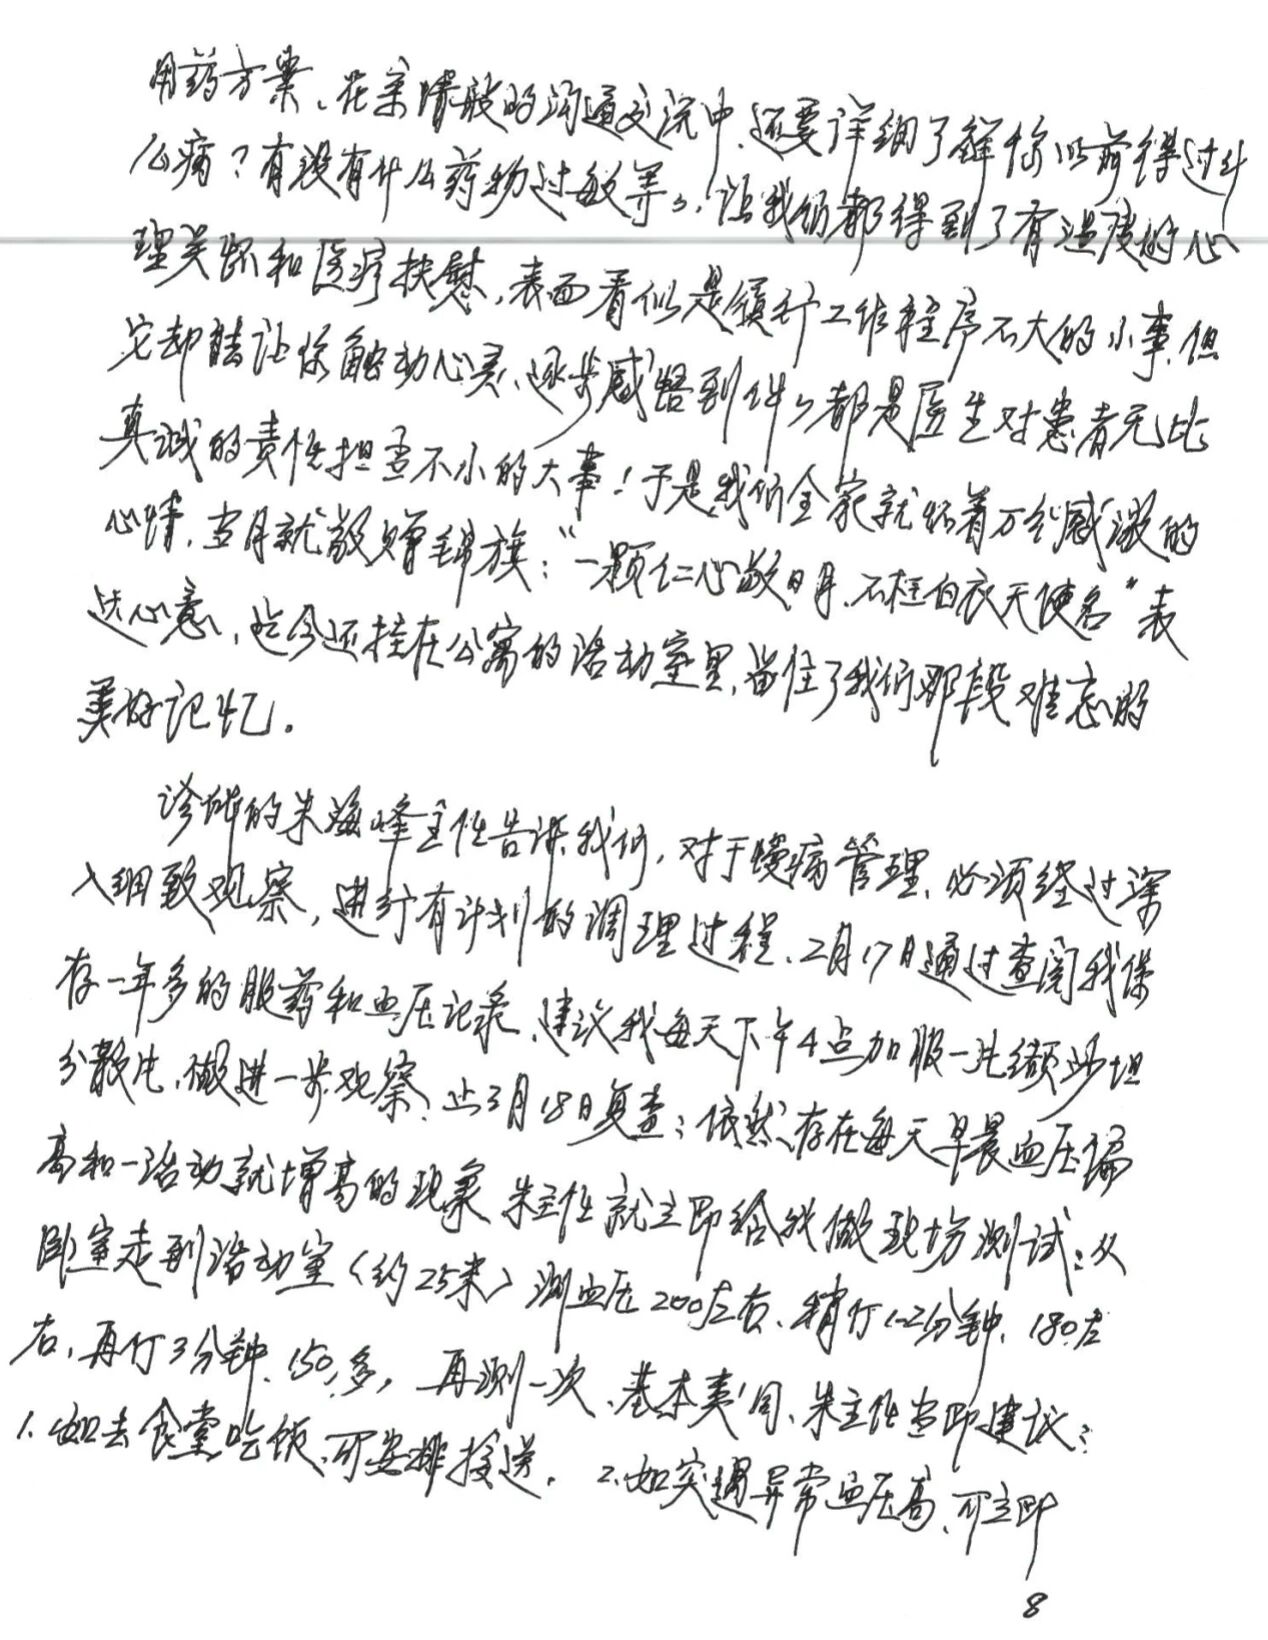 用药方案、在亲情般的沟通交流中、还要详细了解你以前得过什
么病？有没有什么药物过敏等等，让我们都得到了有温度的心
理关怀和医疗抚慰，表面看似是履行工作程序不大的小事，但
它却能让你触动心灵、逐步感悟到件件都是医生对患者无比
真诚的责任担当不小的大事！于是我们全家就怀着万分感激的
心情，当月就敬赠锦旗：“一颗仁心敬日月、不枉白衣天使名”表
达心意，迄今还挂在公寓的活动室里，留住了我们那段难忘的
美好记忆。
诊所的朱海峰主任告诉我们，对于慢病管理、必须经过深
入细致观察，进行有计划的调理过程、2月17日通过查阅我保
存一年多的服药和血压记录、建议我每天下午4点加服一片缬沙坦
分散片，做进一步观察、止3月18日复查：依然存在每天早晨血压偏
高和一活动就增高的现象 朱主任就立即给我做现场测试：从
卧室走到活动室（约25米）测血压200左右、稍停1-2分钟、180左
右，再停3分钟、150多，再测一次、基本类同、朱主任当即建议：
1、如去食堂吃饭、可安排接送。2、如突遇异常血压高、可立即
8